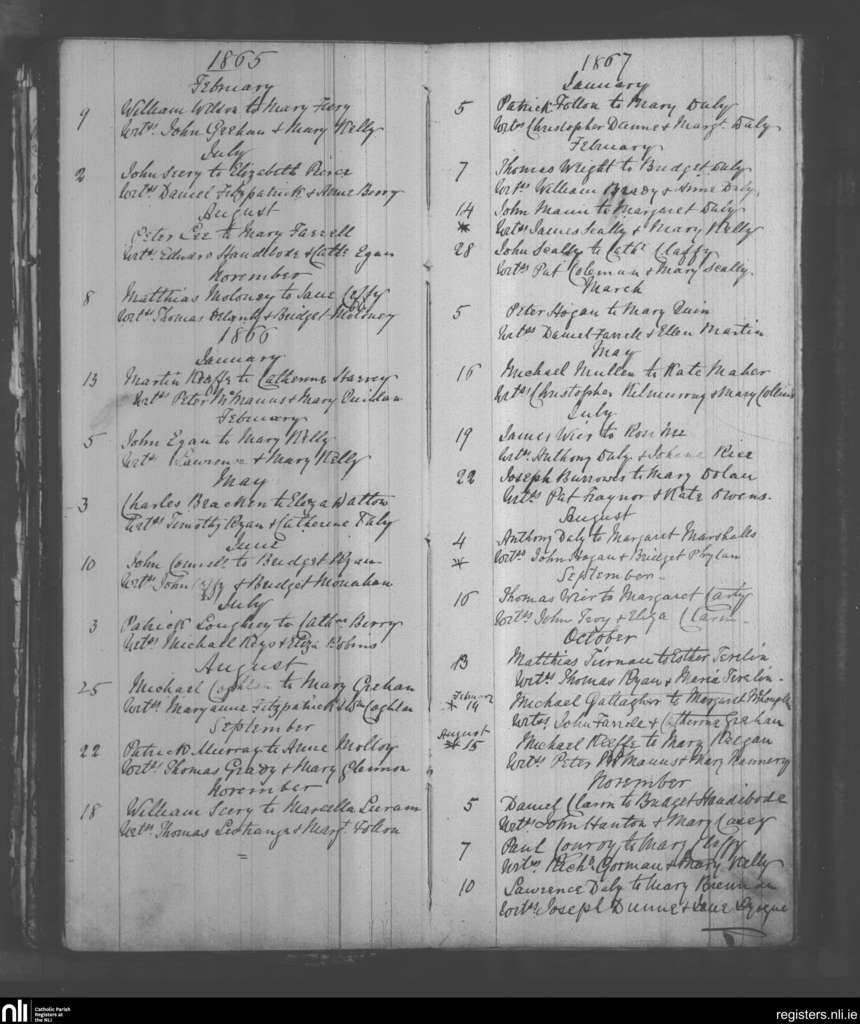 1865
February
9 William Wilson to Mary Fiery
Witns. John Geehan & Mary Kelly
July
2 John Seery to Elizabeth Pierce
Witns Daniel Fitzpatrick & Anne Berry
August
Peter Lee to Mary Farrell
Witns. Edward Handibode & Cathe Egan
November
8 Matthias Moloney to Jane Caffy
Witns Thomas & Bridget Moloney
1866
January
13 Martin Keeffe to Catherine Harvey
Witns Peter McManus & Mary Quillan
February
5 John Egan to Mary Kelly
Witns Lawrence & Mary Kelly
May
3 Charles Bracken to Eliza Dalton
Witns Timothy Ryan & Catherine Faly
June
10 John to Bridget Ryan
Witns John & Bridget Monahan
July
3 Patrick Loughrey to Cathne Berry
Witns Michael Keys & Eliza Robins
August
25 Michael Coghlan to Mary Grehan
Witns Maryanne Fitzpatrick & Wm Coghlan
September
22 Patrick Murray to Anne Molloy
Witns Thomas Grady & Mary Glennon
November
18 William Seery to Marcella
Witns Thomas Lestrange & Margt. Follon
1867
January
5 Patrick Follon to Mary Daly
Witns Christopher Dunne & Margt. Daly
February
7 Thomas Wright to Bridget Daly
Witns William Brady & Anne Daly
14 John Mann to Margaret Daly
Witns James Scally & Mary Kelly
28 John Scally to Cathe Claffy
Witns Pat Coleman & Mary Scally.
March
5 Peter Hogan to Mary Quin
Witns Daniel Farrele & Ellen Martin
May
16 Michael Mullen to Kate Maher
Witns Christopher Kilmurray & Mary Collins
July
19 James Weir to Rose
Witns. Anthony Daly & Rice
22 Joseph Burrowes to Mary Dolan
Witns Pat Traynor & Kate Owens.
August
4 Anthony Daly to Margaret Marshalls
Witns John Hogan & Bridget Phylan
September
16 Thomas Weir to Margaret Carty
Witns John Troy & Eliza Clarn
October
13 Matthias Tiernan to Esther Tevelin
Witns Thomas Ryan & Maria Tevelin
February 14 Michael Gallagher to Margaret
Witns John Farrele & Catherine Grahan
August 15 Michael Keeffe to Mary Keegan
Witns Peter McManus & Mary Kennery
November
5 Daniel Clarn to Bridget Handibode
Witns John Hanton & Mary Casey
7 Paul Conroy to Mary Claffy
Witns Richd. Gorman & Mary Kelly
10 Lawrence Daly to Mary
Witns Joseph Dunne & Jane
nli Catholic Parish
Registers at
the NLI
registers.nli.ie